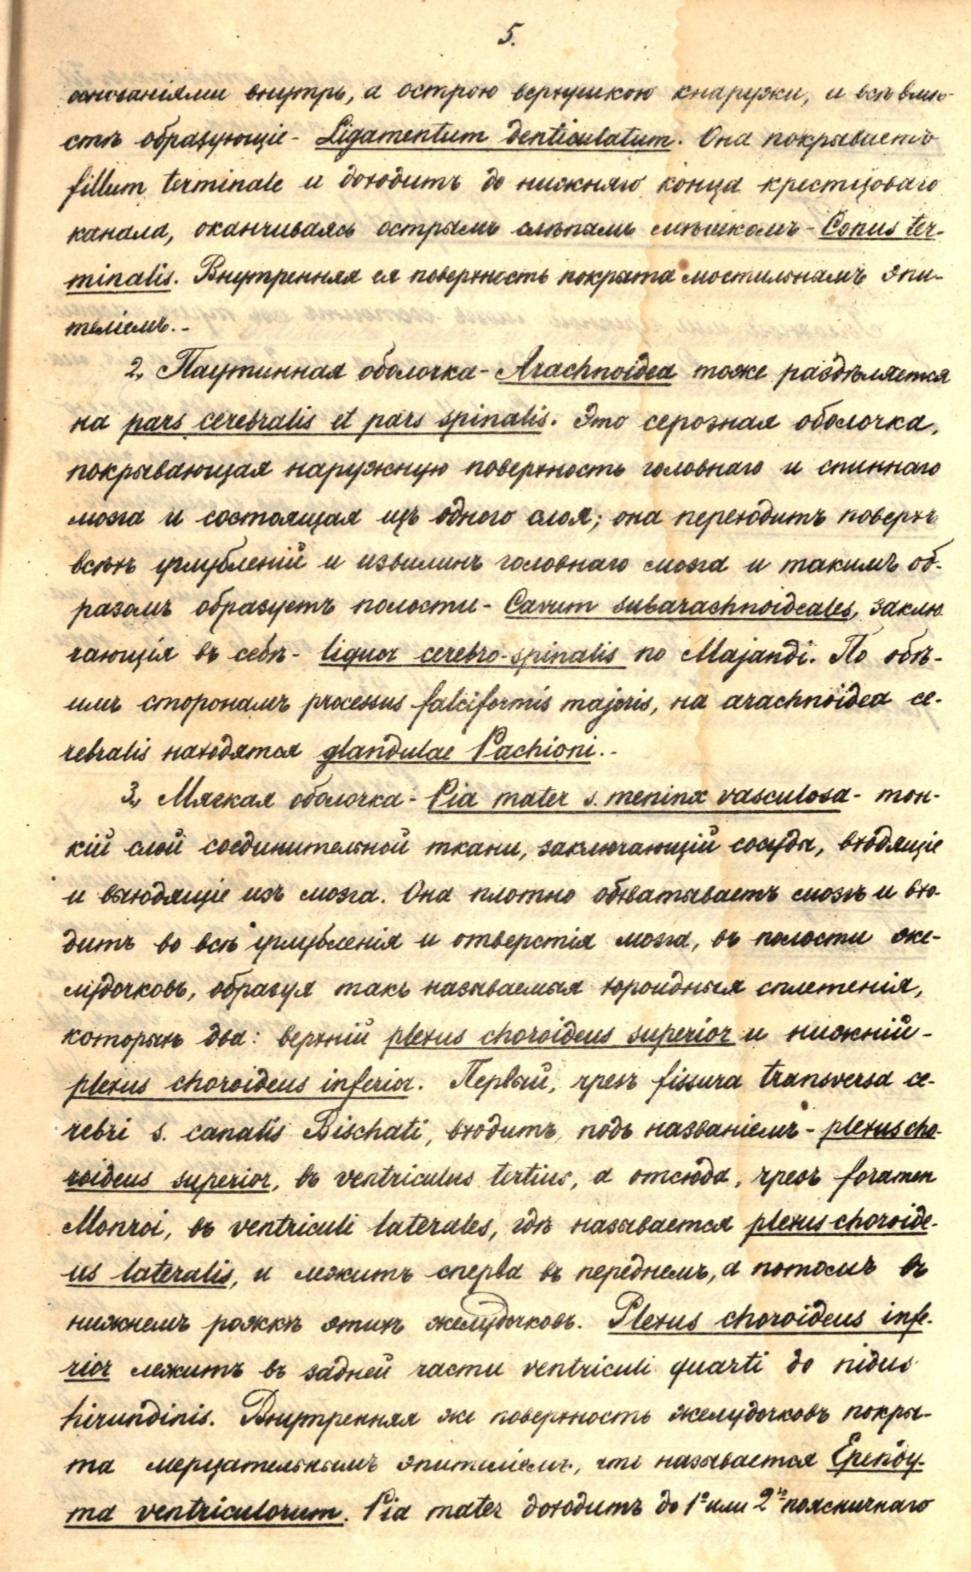 5.
основаніями внутрь, а острою верхушкою кнаружи, и всѣ вмѣ-
стѣ образующіе - Ligamentum denticulatum. Она покрываетъ
fillum terminale и доходитъ до нижняго конца крестцоваго
канала, оканчиваясь острымъ слѣпымъ мѣшкомъ - Conus ter-
minalis. Внутренняя ея поверхность покрыта мостильнымъ эпи-
теліемъ. -
2, Паутинная оболочка - Arachnoidea тоже раздѣляется
на pars cerebralis et pars spinalis. Это серозная оболочка,
покрывающая наружную поверхность головнаго и спиннаго
мозга и состоящая изъ одного слоя; она переходитъ поверхъ
всѣхъ углубленій и извилинъ головнаго мозга и такимъ об-
разомъ образуетъ полости - Cavum subarachnoideales, заклю
чающія въ себѣ - liquor cerebro-spinalis по Majandi. По обѣ-
имъ сторонамъ processus falciformis majoris, на arachnoidea ce-
rebralis находятся glandulae Pachioni. -
3, Мягкая оболочка - Pia mater s. meninx vasculosa - тон-
кій слой соединительной ткани, заключающій сосуды, входящіе
и выходящіе изъ мозга. Она плотно обхватываетъ мозгъ и вхо-
дитъ во всѣ углубленія и отверстія мозга, въ полости же-
лудочковъ, образуя такъ называемыя хороидныя сплетенія,
которыхъ два: верхній plexus choroideus superior и нижній -
plexus choroideus inferior. Первый, чрезъ fissura transversa ce-
rebri s. canalis Bischati, входитъ, подъ названіемъ - plexus cho-
roideus superior, въ ventriculus tertius, а отсюда, чрезъ foramen
Monroi, въ ventriculi laterales, гдѣ называется plexus choroide-
us lateralis, и лежитъ сперва въ переднемъ, а потомъ въ
нижнемъ рожкѣ этихъ желудочковъ. Plexus choroideus infe-
rior лежитъ въ задней части ventriculi quarti до nidus
hirundinis. Внутренняя же поверхность желудочковъ покры-
та мерцательнымъ эпителіемъ, что называется Ependy-
ma ventriculorum. Pia mater доходитъ до 1го или 2го поясничнаго